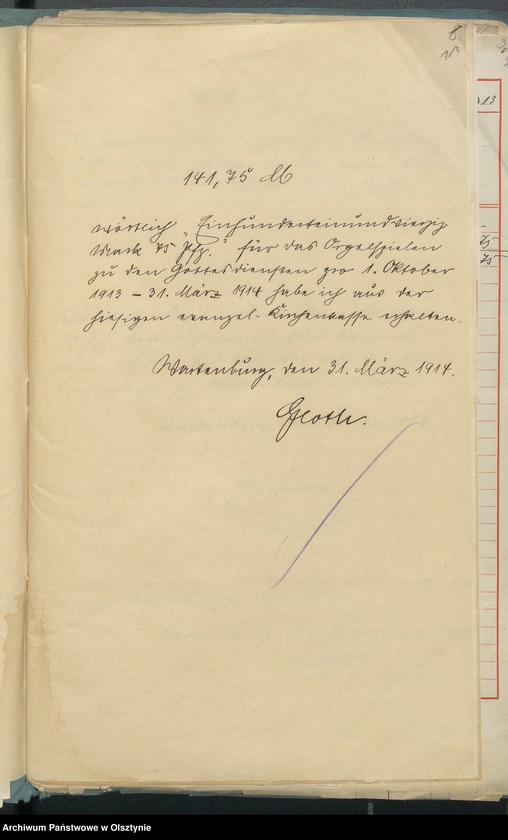 141,75 M
wörtlich „Einhunderteinundvierzig
Mark 75 Pfg.“ für das Orgelspielen
zu den Gottesdiensten pro 1. Oktober
1913 – 31. März 1914 habe ich aus der
hiesigen evangel. Kirchenkasse erhalten.
Wartenburg, den 31. März 1914.
13
75
75
Archiwum Państwowe w Olsztynie